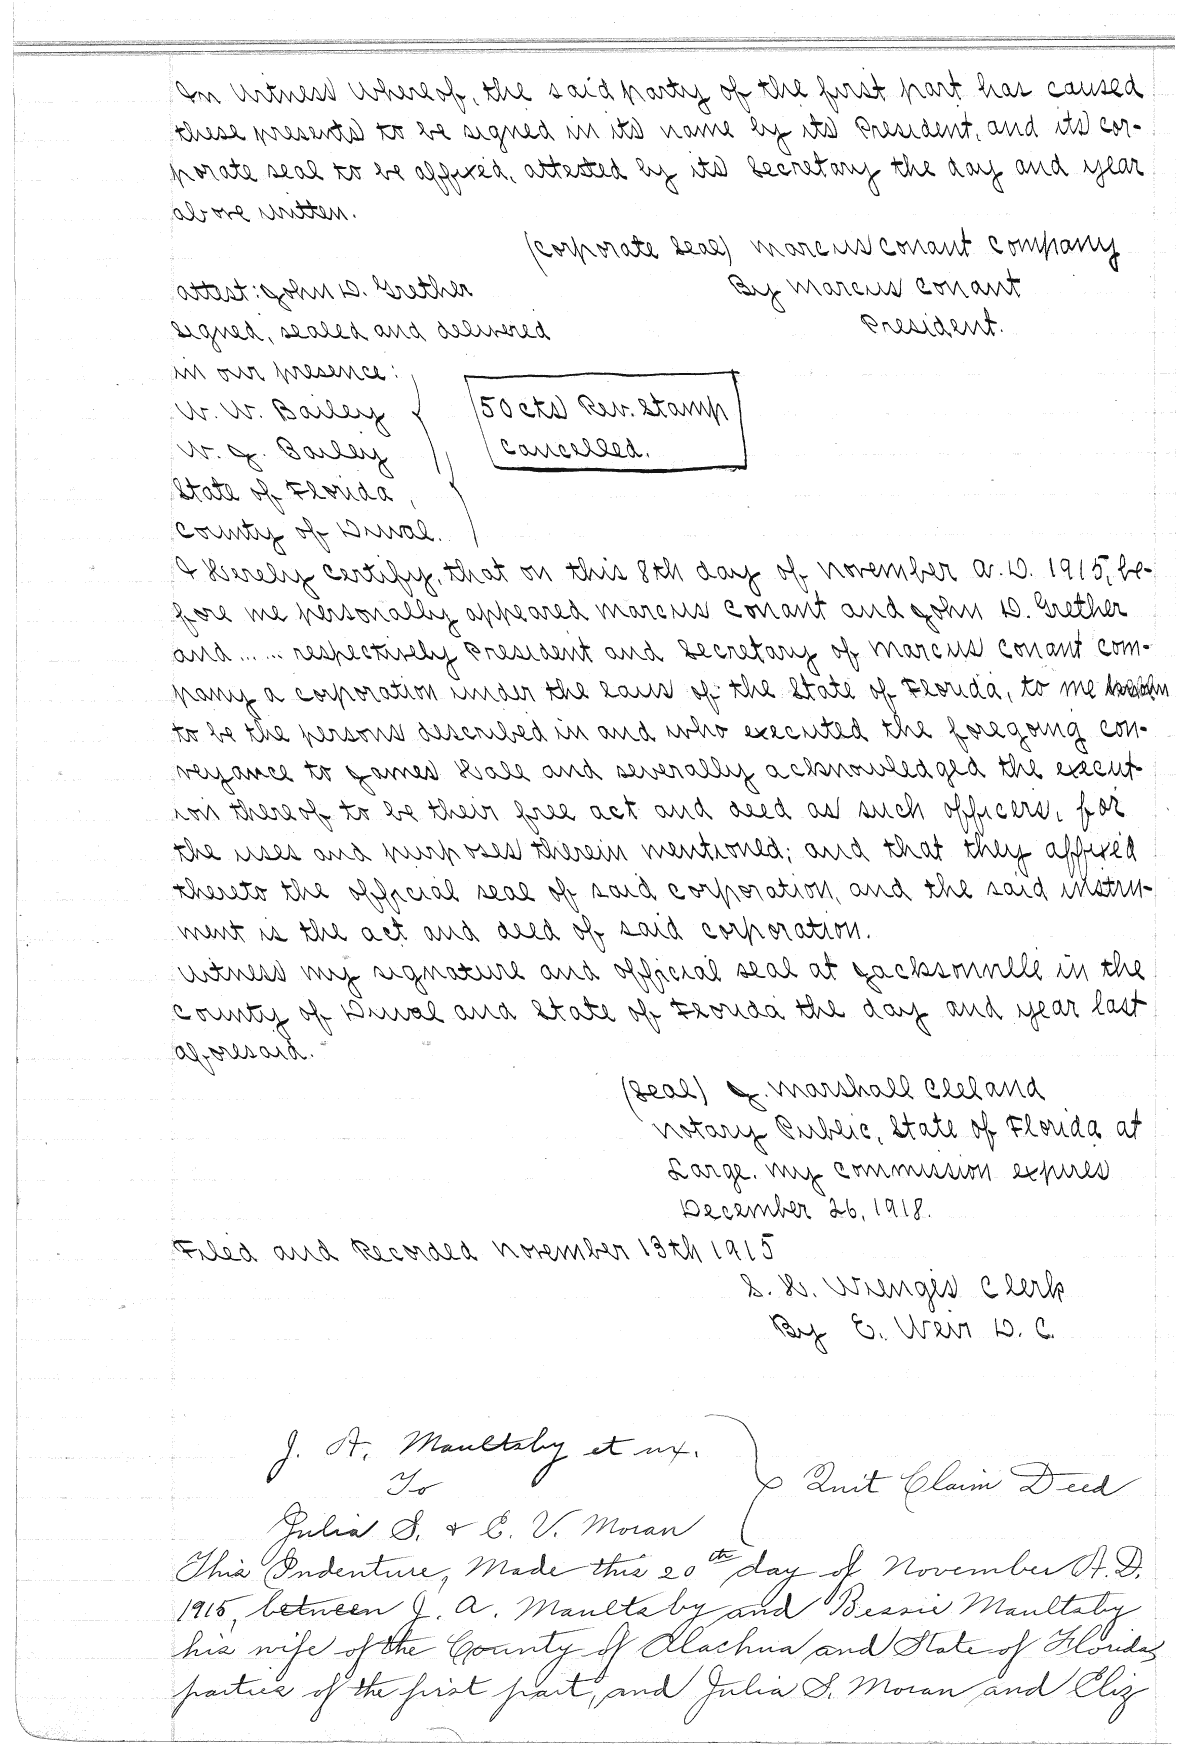 In Witness Whereof, the said party of the first part has caused
these presents to be signed in its name by its President, and its cor-
porate seal to be affixed, attested by its Secretary the day and year
above written.
(Corporate Seal) Marcus Conant Company
Attest: John D. Grether By Marcus Conant
Signed, sealed and delivered President.
in our presence:
W. W. Bailey 50 cts Rev. Stamp
W. J. Bailey Cancelled.
State of Florida,
County of Duval.
I Hereby Certify, that on this 8th day of November A.D. 1915, be-
fore me personally appeared Marcus Conant and John D. Grether
and ... ... respectively President and Secretary of Marcus Conant Com-
pany a corporation under the laws of the State of Florida, to me known
to be the persons described in and who executed the foregoing con-
veyance to James Hale and severally acknowledged the execut-
ion thereof to be their free act and deed as such officers, for
the uses and purposes therein mentioned; and that they affixed
thereto the official seal of said corporation, and the said instru-
ment is the act and deed of said corporation.
Witness my signature and official seal at Jacksonville in the
County of Duval and State of Florida the day and year last
aforesaid.
(Seal) J. Marshall Cleland
Notary Public, State of Florida at
Large. My commission expires
December 26, 1918.
Filed and Recorded November 13th 1915
S. H. Wienges Clerk
By E. Weir D. C.
J. A. Maultsby et ux.
To Quit Claim Deed
Julia S. & E. V. Moran
This Indenture, Made this 20th day of November A.D.
1915, between J. A. Maultsby and Bessie Maultsby
his wife of the County of Alachua and State of Florida
parties of the first part, and Julia S. Moran and Eliz